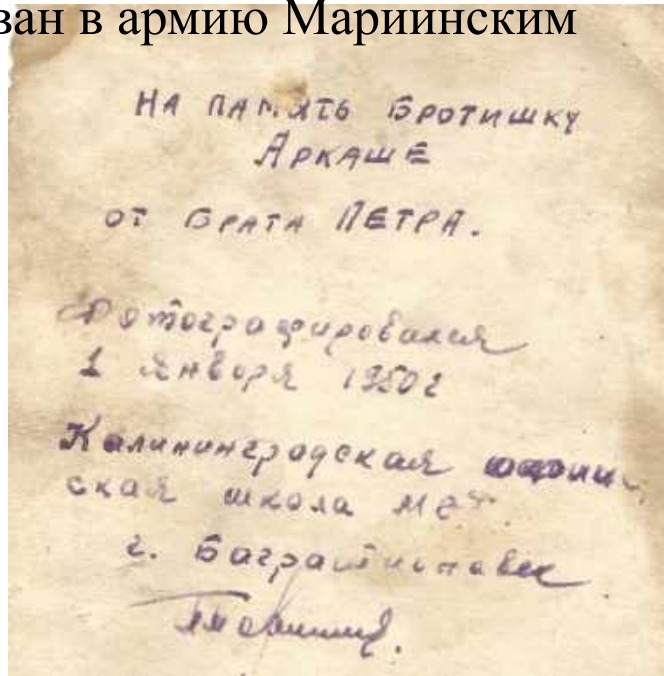 ван в армию Мариинским
НА ПАМЯТЬ БРОТИШКУ
АРКАШЕ
ОТ БРАТА ПЕТРА.
Фотографировался
1 января 1950 г
Калининградская
ская школа
г. Багратионавск